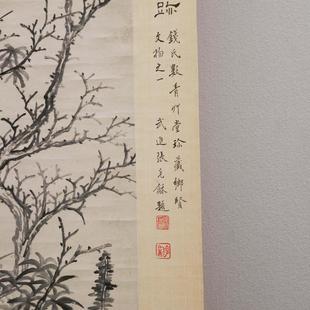 跡
錢氏數青草堂珍藏鄉賢
文物之一 武進張元龢題